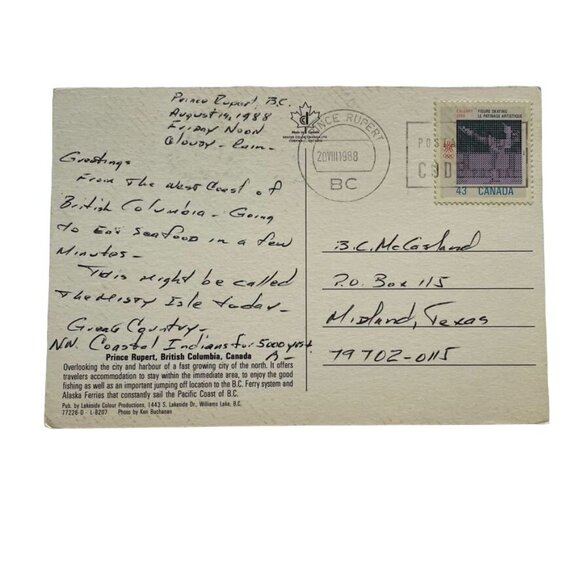 Prince Rupert, B.C.
August 19, 1988
Friday Noon
Cloudy - Rain -
Greetings
From the West Coast of
British Columbia - Going
to Eat Seafood in a few
Minutes -
This might be called
The Misty Isle today -
Great Country -
N.W. Coastal Indians for 5000 yrs +
A -
Prince Rupert, British Columbia, Canada
Overlooking the city and harbour of a fast growing city of the north. It offers
travelers accommodation to stay within the immediate area, to enjoy the good
fishing as well as an important jumping off location to the B.C. Ferry system and
Alaska Ferries that constantly sail the Pacific Coast of B.C.
Pub. by Lakeside Colour Productions, 1443 S. Lakeside Dr., Williams Lake, B.C.
77226-D - L-8207 Photo by Ken Buchanan
Made in Canada
PRINCE RUPERT
20 VIII 1988
BC
POSTAL
CODE
CALGARY
1988
FIGURE SKATING
LE PATINAGE ARTISTIQUE
43 CANADA
B.C. McCasland
P.O. Box 115
Midland, Texas
79702-0115